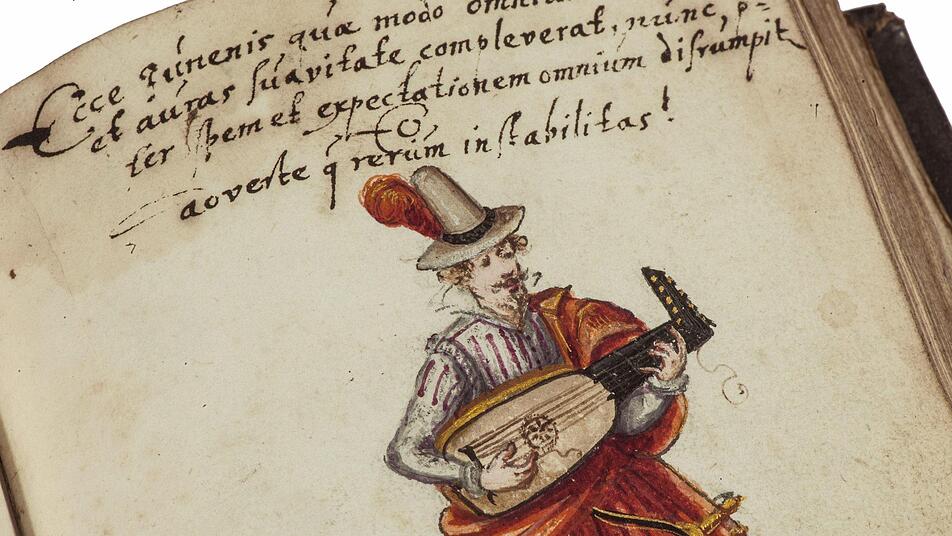 Ecce Juvenis quæ modo omni
et auras suavitate compleverat, nunc, p=
ter spem et expectationem omnium disrumpit
Adverte q̃ rerum instabilitas!